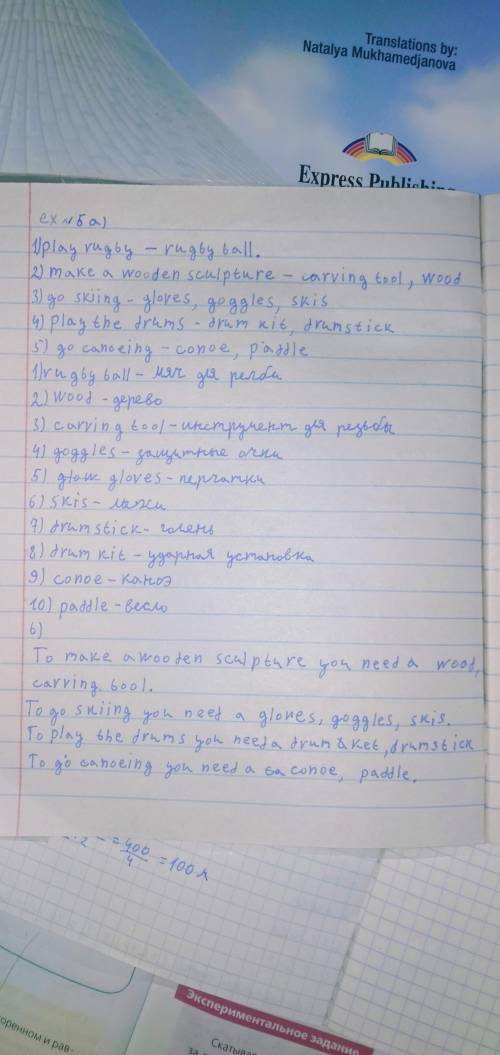 Translations by:
Natalya Mukhamedjanova
Express Publishing
ex №5 a)
1) play rugby – rugby ball.
2) make a wooden sculpture – carving tool, wood
3) go skiing – gloves, goggles, skis
4) play the drums - drum kit, drumstick
5) go canoeing – conoe, paddle
1) rugby ball – мяч для регби
2) wood - дерево
3) carving tool – инструмент для резьбы
4) goggles – защитные очки
5) gloves - перчатки
6) skis – лыжи
7) drumstick - голень
8) drum kit – ударная установка
9) conoe – каноэ
10) paddle - весло
б)
To make a wooden sculpture you need a wood,
carving tool.
To go skiing you need a gloves, goggles, skis.
To play the drums you need a drum ket, drumstick
To go canoeing you need a conoe, paddle.
= 400/4 = 100
Экспериментальное задание
Скатыва
оренном и рав-